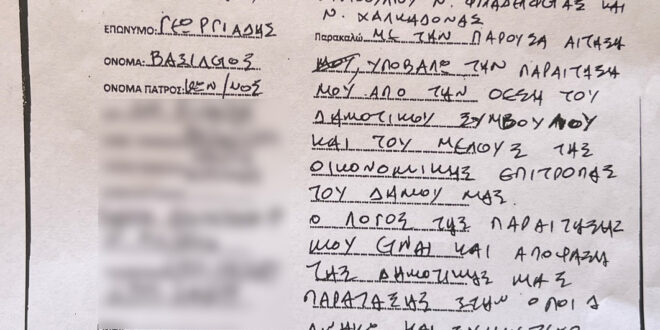 ΣΥΜΒΟΥΛΙΟΥ Ν. ΦΙΛΑΔΕΛΦΕΙΑΣ ΚΑΙ
Ν. ΧΑΛΚΑΔΟΝΑΣ
ΕΠΩΝΥΜΟ: ΓΕΩΡΓΙΑΔΗΣ
ΟΝΟΜΑ: ΒΑΣΙΛΕΙΟΣ
ΟΝΟΜΑ ΠΑΤΡΟΣ: ΚΩΝ/ΝΟΣ
Παρακαλώ ΜΕ ΤΗΝ ΠΑΡΟΥΣΑ ΑΙΤΗΣΗ
ΜΟΥ, ΥΠΟΒΑΛΩ ΤΗΝ ΠΑΡΑΙΤΗΣΗ
ΜΟΥ ΑΠΟ ΤΗΝ ΘΕΣΗ ΤΟΥ
ΔΗΜΟΤΙΚΟΥ ΣΥΜΒΟΥΛΟΥ
ΚΑΙ ΤΟΥ ΜΕΛΟΥΣ ΤΗΣ
ΟΙΚΟΝΟΜΙΚΗΣ ΕΠΙΤΡΟΠΗΣ
ΤΟΥ ΔΗΜΟΥ ΜΑΣ.
Ο ΛΟΓΟΣ ΤΗΣ ΠΑΡΑΙΤΗΣΗΣ
ΜΟΥ ΕΙΝΑΙ ΚΑΙ ΑΠΟΦΑΣΗ
ΤΗΣ ΔΗΜΟΤΙΚΗΣ ΜΑΣ
ΠΑΡΑΤΑΞΗΣ ΣΤΗΝ ΟΠΟΙΑ